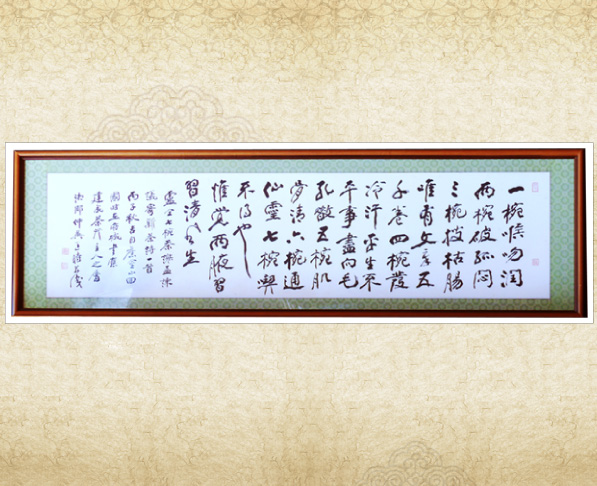 一椀喉吻潤
兩椀破孤悶
三椀搜枯腸
唯有文字五
千卷四椀發
冷汗平生不
平事盡向毛
孔散五椀肌
骨清六椀通
仙靈七椀喫
不得也
惟覺兩腋習
習清風生
盧仝七椀茶孟諫
議寄新茶詩一首
丙子秋